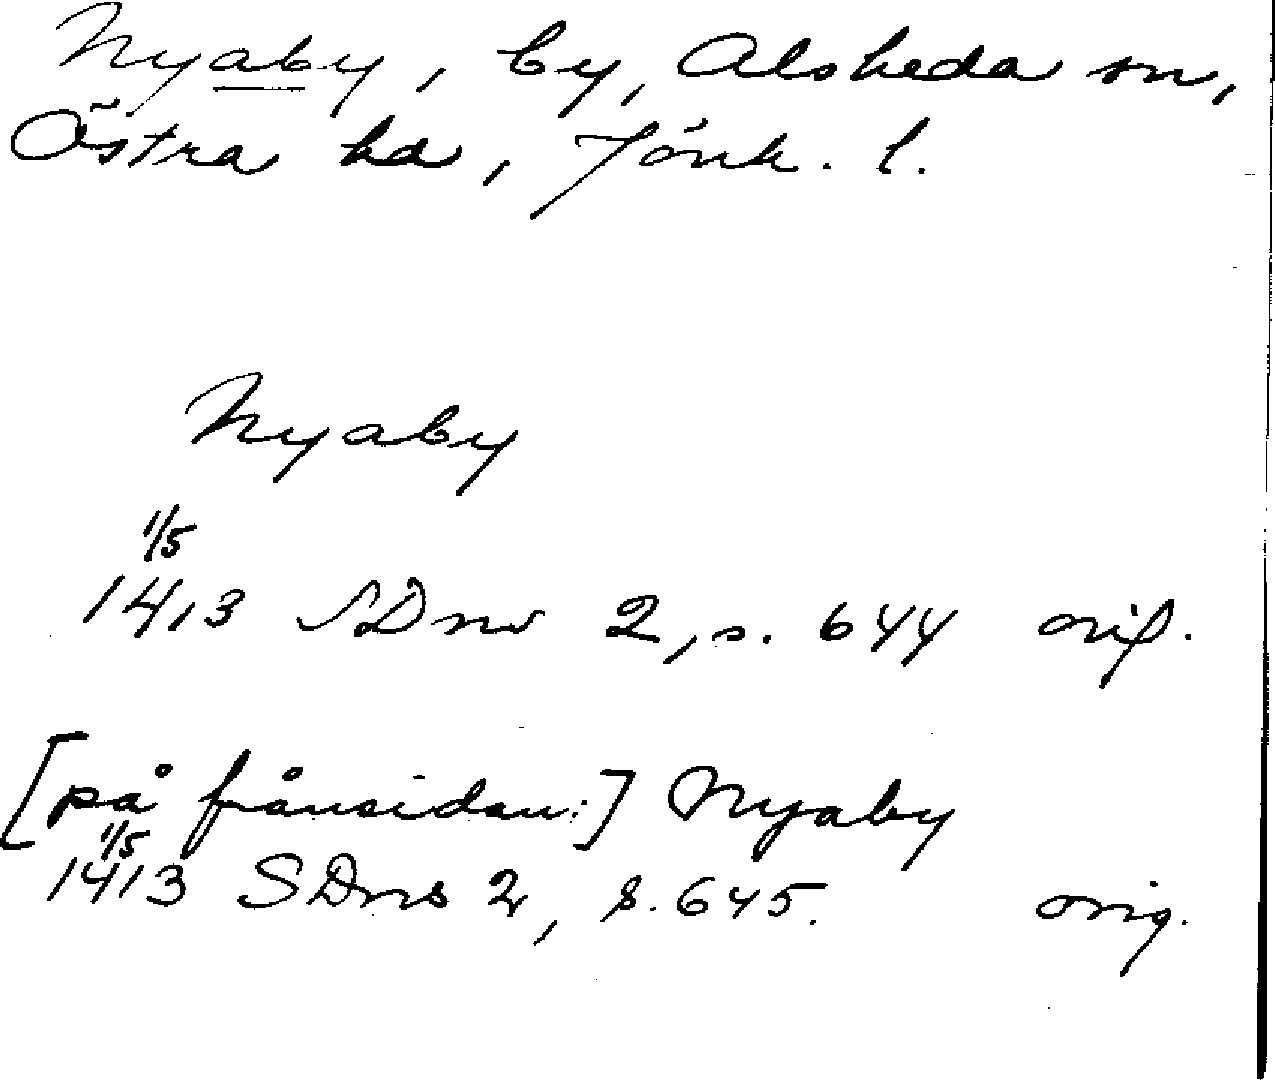 Nyaby, by, Alsheda sn,
Östra hd, Jönk. l.
Nyaby
1/5
1413 SDns 2, s. 644 orig.
[på frånsidan:] Nyaby
1/5
1413 SDns 2, s. 645. orig.